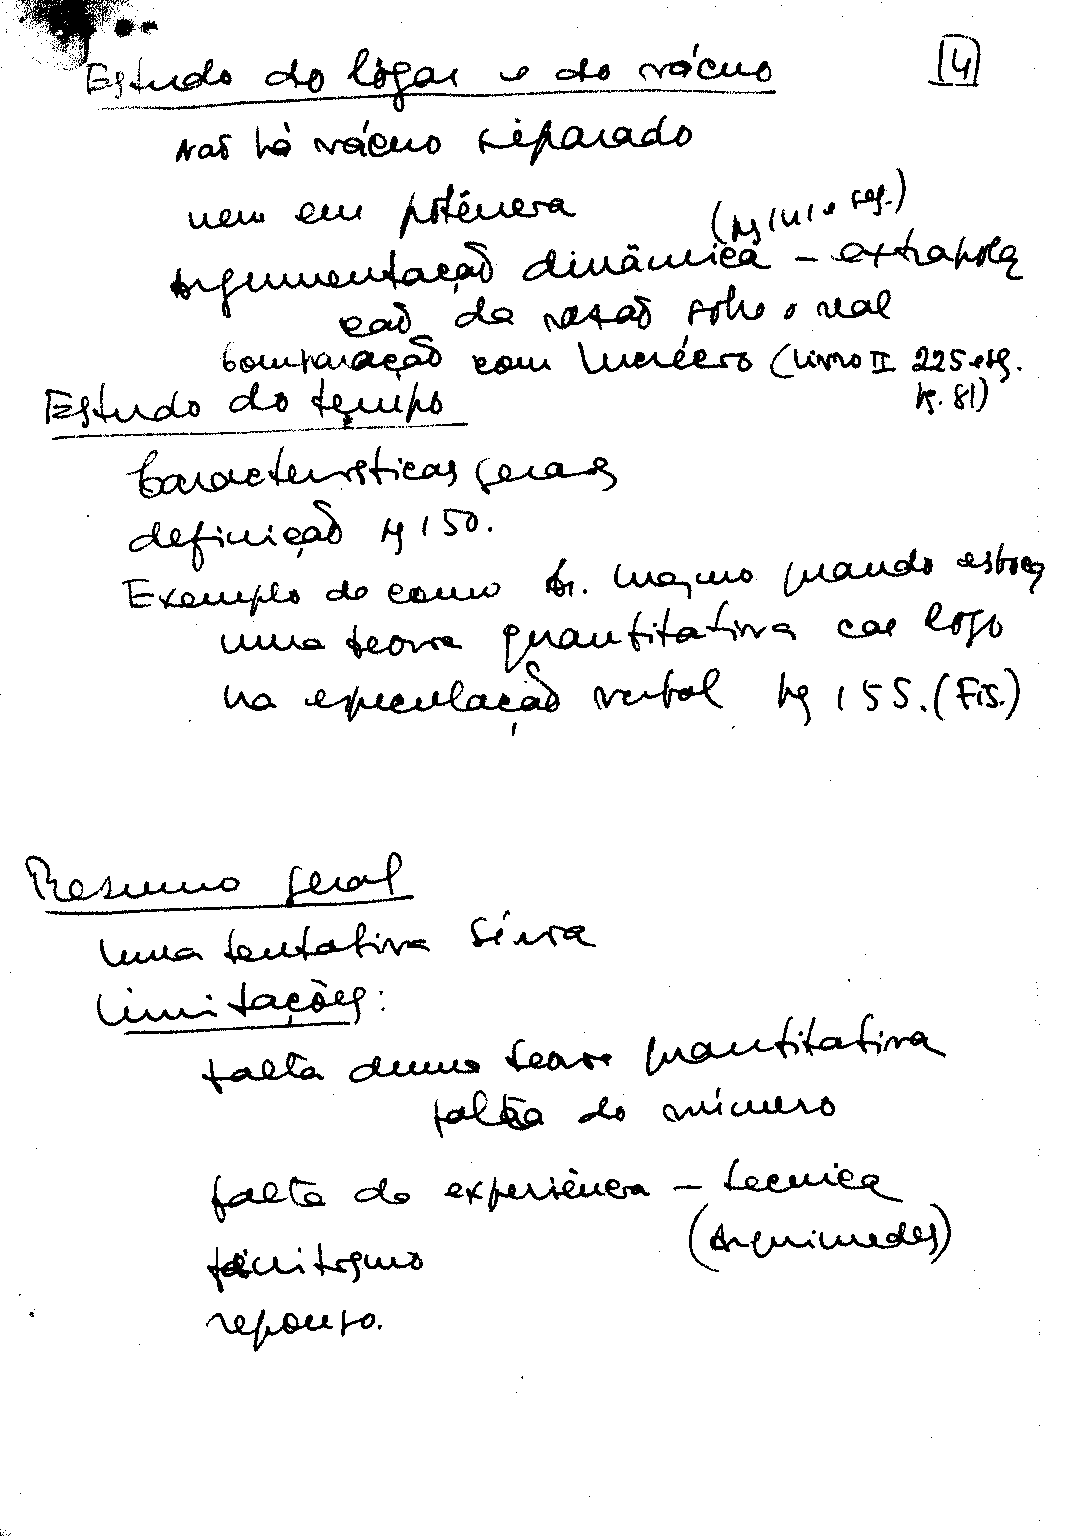 Estudo do lógar e do vácuo
4
Não há vácuo separado
nem em potência
(pg 141 e seg.)
Argumentação dinâmica - extrapola
ção da razão sobre o real
Comparação com Lucrécio (Livro II 225 e sg.
pg. 81)
Estudo do tempo
Características gerais
definição pg 150.
Exemplo de como Ar. mesmo quando esboça
uma teoria quantitativa cae logo
na especulação verbal pg 155. (Fis.)
Resumo geral
Uma tentativa séria
Limitações:
falta duma teoria quantitativa
falta do número
falta de experiência - tecnica
(Arquimedes)
finitismo
repouso.